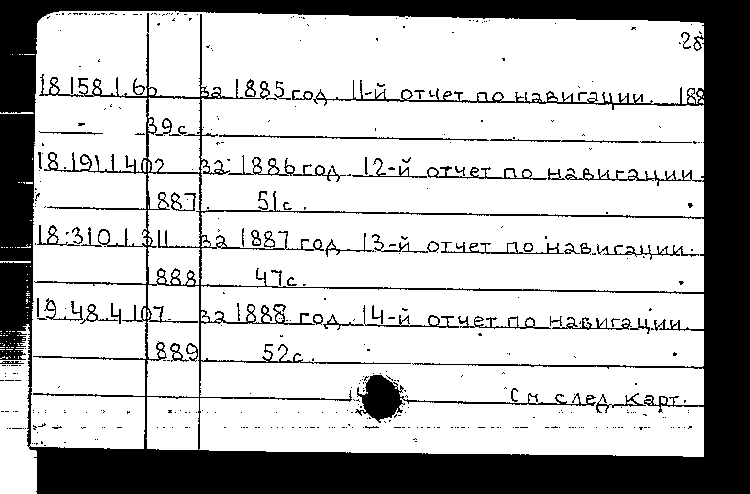 2б
18.158.1.66 за 1885 год. 11-й отчет по навигации. 188
39с.
18.191.1.402 за 1886 год. 12-й отчет по навигации.
1887. 51с.
18.310.1.311 за 1887 год. 13-й отчет по навигации.
1888. 47с.
19.48.4.107. за 1888 год. 14-й отчет по навигации.
1889. 52с.
См. след. карт.